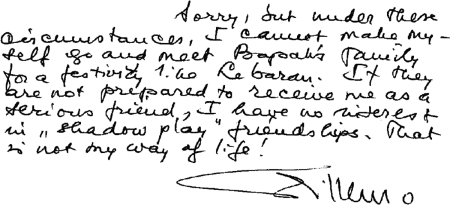 Sorry, but under these
circumstances, I cannot make my-
self go and meet Bapak's family
for a festivity like Lebaran. If they
are not prepared to receive me as a
serious friend, I have no interest
in „shadow play" friendships. That
is not my way of life!